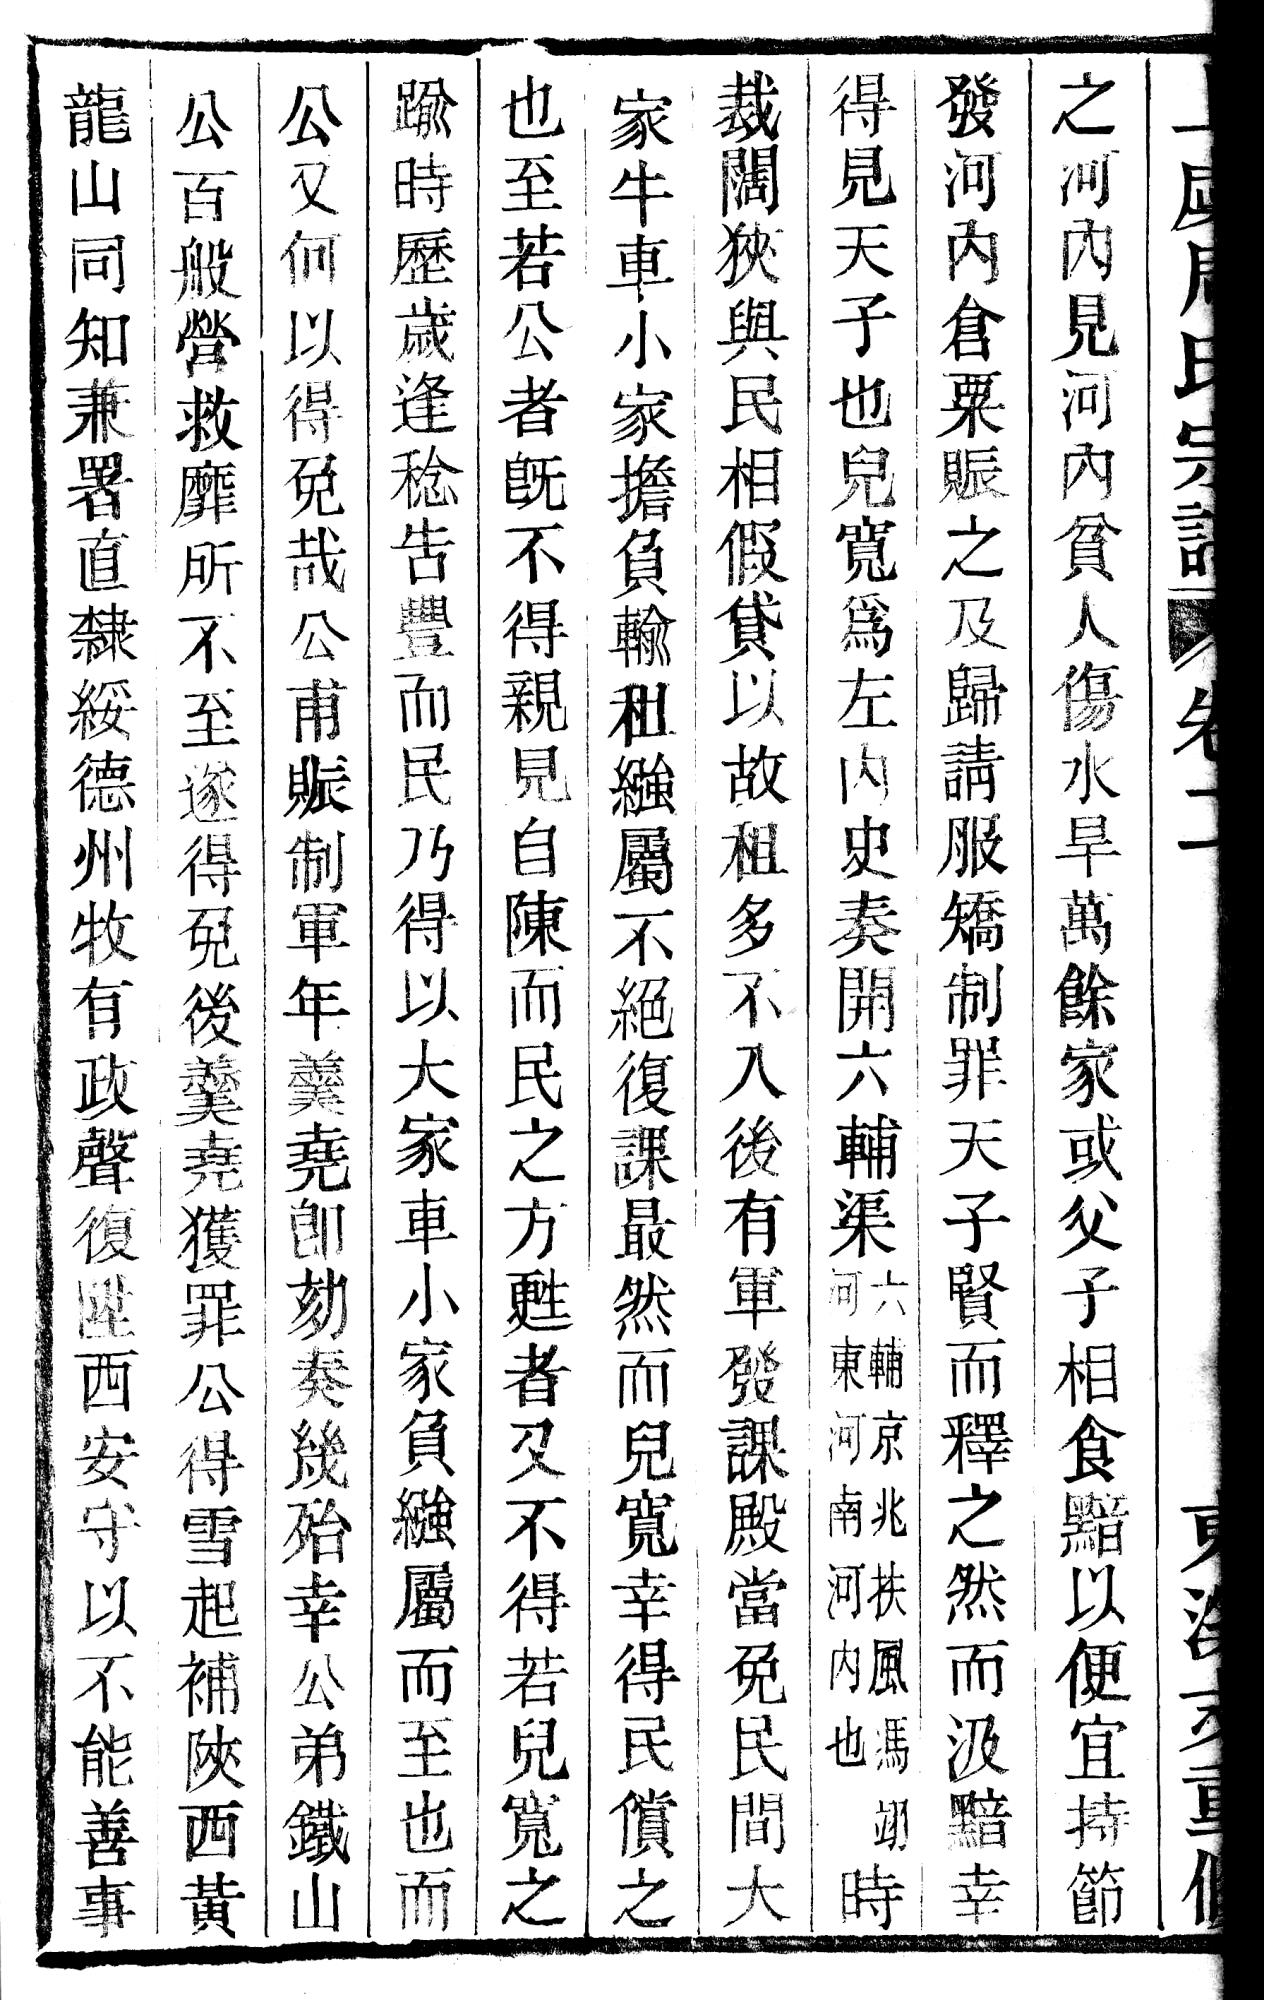 之河內見河內貧人傷水旱萬餘家或父子相食黯以便宜持節
發河內倉粟賑之及歸請服矯制罪天子賢而釋之然而汲黯幸
得見天子也兒寬為左內史奏開六輔渠六輔京兆扶風馮翊河東河南河內也時
裁闊狹與民相假貸以故租多不入後有軍發課殿當免民間大
家牛車小家擔負輸租繈屬不絕復課最然而兒寬幸得民償之
也至若公者旣不得親見自陳而民之方甦者又不得若兒寬之
踰時歷歲逢稔告豐而民乃得以大家車小家負繈屬而至也而
公又何以得免哉公甫賑制軍年羹堯卽劾奏幾殆幸公弟鐵山
公百般營救靡所不至遂得免後羹堯獲罪公得雪起補陝西黃
龍山同知兼署直隸綏德州牧有政聲復陞西安守以不能善事